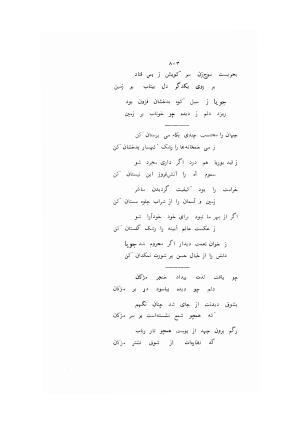 ۸۰۳
بحریست موج‌زن سر کویش ز بس فتاد
بر روی یکدگر دل بیتاب بر زمین
جویا ز سیل کوه بدخشان فزون بود
ریزد دلم ز دیده چو خوناب بر زمین
جهان را محتسب چندی بکام می پرستان کن
ز می خمخانه‌ها را رشک کهسار بدخشان کن
ز قید بوریا هم درد اگر داری مجرد شو
سموم آه را آتش‌فروز این نیستان کن
خرامت را بود کیفیت گردیدن ساغر
زمین و آسمان را از شراب جلوه مستان کن
اگر از بهر ما نبود برای خود خودآرا شو
ز عکست خانم آیینه را رشک گلستان کن
ز خوان نعمت دیدار اگر محروم شد جویا
دلش را از خیال حسن پر شورت نمکدان کن
چو یافت لذت بیداد خنجر مژگان
دلم چو دیده بپاسود در بر مژگان
بشوق دیدنت از جای شد چنان نگهم
که همچو شمع نشسته‌است بر سر مژگان
رگم برون جهد از پوست همچو تار رباب
که از شوق نشتر مژگان